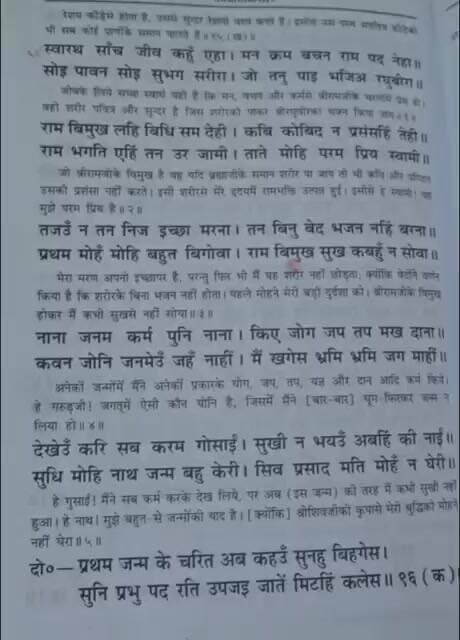 रेशम कीड़ेसे होता है, उससे सुन्दर रेशमी वस्त्र बनते हैं। इसीसे उस परम अपवित्र कीड़ेको
भी सब कोई प्राणोंके समान पालते हैं॥ ९५ (ख)॥
स्वारथ साँच जीव कहुँ एहा। मन क्रम बचन राम पद नेहा॥
सोइ पावन सोइ सुभग सरीरा। जो तनु पाइ भजिअ रघुबीरा॥
जीवके लिये सच्चा स्वार्थ यही है कि मन, वचन और कर्मसे श्रीरामजीके चरणोंमें प्रेम हो।
वही शरीर पवित्र और सुन्दर है जिस शरीरको पाकर श्रीरघुवीरका भजन किया जाय॥ १॥
राम बिमुख लहि बिधि सम देही। कबि कोबिद न प्रसंसहिं तेही॥
राम भगति एहिं तन उर जामी। ताते मोहि परम प्रिय स्वामी॥
जो श्रीरामजीके विमुख है वह यदि ब्रह्माजीके समान शरीर पा जाय तो भी कवि और पण्डित
उसकी प्रशंसा नहीं करते। इसी शरीरसे मेरे हृदयमें रामभक्ति उत्पन्न हुई। इसीसे हे स्वामी! यह
मुझे परम प्रिय है॥ २॥
तजउँ न तन निज इच्छा मरना। तन बिनु बेद भजन नहिं बरना॥
प्रथम मोहँ मोहि बहुत बिगोवा। राम बिमुख सुख कबहुँ न सोवा॥
मेरा मरण अपनी इच्छापर है, परन्तु फिर भी मैं यह शरीर नहीं छोड़ता; क्योंकि वेदोंने वर्णन
किया है कि शरीरके बिना भजन नहीं होता। पहले मोहने मेरी बड़ी दुर्दशा की। श्रीरामजीके विमुख
होकर मैं कभी सुखसे नहीं सोया॥ ३॥
नाना जनम कर्म पुनि नाना। किए जोग जप तप मख दाना॥
कवन जोनि जनमेउँ जहँ नाहीं। मैं खगेस भ्रमि भ्रमि जग माहीं॥
अनेकों जन्मोंमें मैंने अनेकों प्रकारके योग, जप, तप, यज्ञ और दान आदि कर्म किये।
हे गरुड़जी! जगत्‌में ऐसी कौन योनि है, जिसमें मैंने [बार-बार] घूम-फिरकर जन्म न
लिया हो॥ ४॥
देखेउँ करि सब करम गोसाईं। सुखी न भयउँ अबहिं की नाईं॥
सुधि मोहि नाथ जन्म बहु केरी। सिव प्रसाद मति मोहँ न घेरी॥
हे गुसाईं! मैंने सब कर्म करके देख लिये, पर अब (इस जन्म) की तरह मैं कभी सुखी नहीं
हुआ। हे नाथ! मुझे बहुत-से जन्मोंकी याद है। [क्योंकि] श्रीशिवजीकी कृपासे मेरी बुद्धिको मोहने
नहीं घेरा॥ ५॥
दो०—प्रथम जन्म के चरित अब कहउँ सुनहु बिहगेस।
सुनि प्रभु पद रति उपजइ जातें मिटहिं कलेस॥ ९६ (क)॥